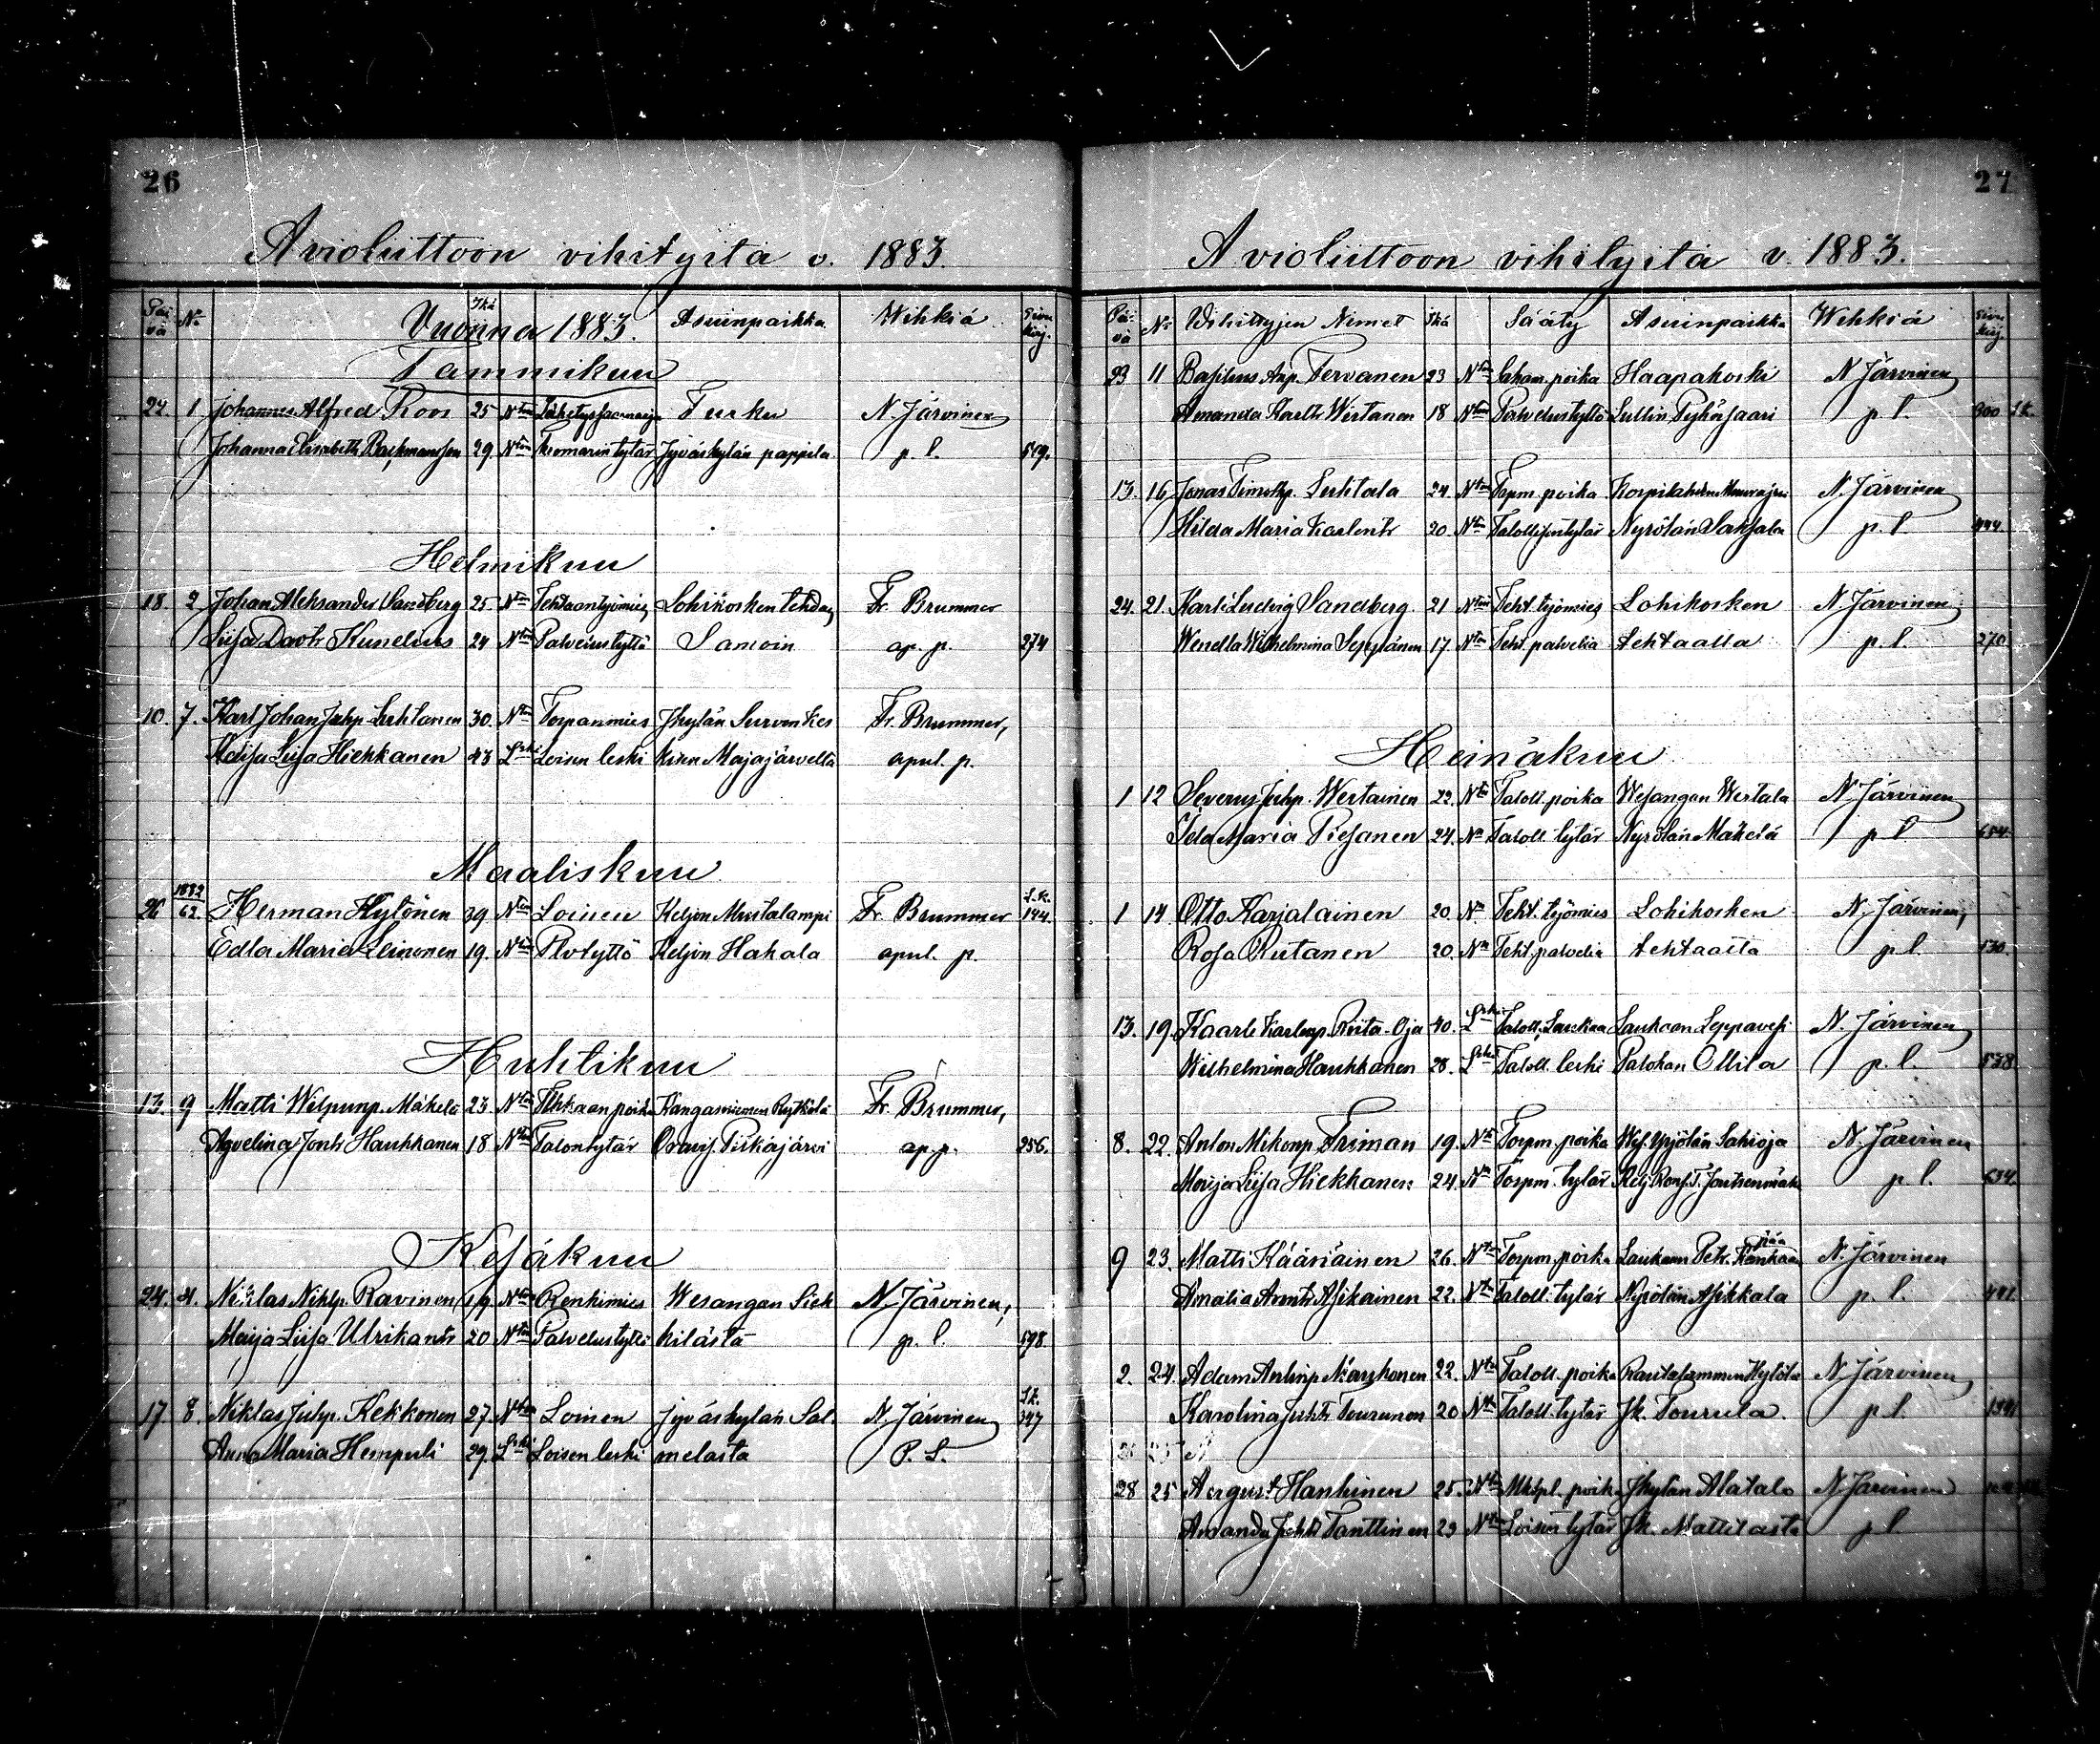 26
Avioliittoon vihityitä v. 1883.
Päivä No Vuonna 1883. Ikä Asuinpaikka Wihkiä Sivu kirj.
Tammikuu
24. 1 Johannes Alfred Roos 25 Nton Turku N. Järvinen
Johanna Elisabeth 29. Nton tytär Jyväskylän pappila p. l. 519.
Helmikuu
18. 2 Johan Aleksander Sandberg 25 Nton Tehtaantyömies Lohikosken tehdas Fr. Brummer
Liisa Davtr Kunelius 24 Nton Palvelustyttö Samoin ap. p. 274
10. 7. Karl Johan Juhp. Luhtanen 30. Nton Torpanmies Jkylän Fr. Brummer,
Maija Liisa Hiekkanen 43 Lski Loisen leski Majajärveltä apul. p.
Maaliskuu
26 1882/62. Herman Hytönen 39 Nton Loinen Keljon Mustalampi Fr. Brummer L.K. 144.
Edla Maria Leinonen 19. Nton Plvtyttö Keljon Hakala apul. p.
Huhtikuu
13. 9 Matti Wilpunp. Mäkelä 23 Nton poika Kangasniemen Fr. Brummer,
Jontr Hauhkanen 18 Nton Talontytär ap. p. 256.
Kesäkuu
24. 4. Niklas Niklp. Ravinen 19. Nton Renkimies Wesangan Siek N. Järvinen,
Maija Liisa Ulrikantr 20 Nton Palvelustyttö kilästä p. l. 598
17 8 Niklas Juhp. Kekkonen 27. Nton Loinen Jyväskylän Sal. N. Järvinen L.k. 347
Anna Maria Hempuli 29. Lski Loisen leski melasta P. L.
27
Avioliittoon vihityitä v. 1883.
Päivä No Wihittyjen Nimet Ikä Sääty Asuinpaikka Wihkiä Sivu kirj.
23 11 Basilius Anp. Tervanen 23 Nton poika Haapakoski N. Järvinen
Amanda Karltr Wirtanen 18 Nton Palvelustyttö Pyhäsaari p. l. 300
13. 16 Jonas Timothp. Luhtala 24. Nton Torpm. poika N. Järvinen
Hilda Maria Kaslentr 20. Nton Talollisentytär Nyrölän p. l. 444.
24. 21. Karl Ludvig Sandberg 21 Nton Teht. työmies Lohikosken N. Järvinen
Wendla Wilhelmina Seppänen 17. Nton Teht. palvelia tehtaalla p. l. 270.
Heinäkuu
1 12 Severus Juhp. Wertainen 22. Nton Taloll. poika Wesangan Wertala N. Järvinen
Ida Maria Piesanen 24. Nn Taloll. tytär Nyrölän Mäkelä p. l. 684.
1 14. Otto Karjalainen 20. Nn Teht. työmies Lohikosken N. Järvinen,
Rosa Rutanen 20. Nn Teht. palvelia tehtaalta p. l. 130.
13. 19. Kaarle Karlenp. Riita-Oja 40. Lski Taloll. Laukaa Laukaan Leppävesi N. Järvinen
Wilhelmina Hauhkanen 28. Lski Taloll. leski Palokan Ollila p. l. 538
8. 22. Anton Mikonp. Friman 19. Nn Torpm. poika Sahioja N. Järvinen
Maija Liisa Hiekkanen 24. Nn Torpm. tytär p. l. 634.
9 23. Matti Kääriäinen 26. Nton Torpm. poika Laukaan Petr. Kankaanpää N. Järvinen
Amalia Arontr Asikainen 22. Nton Taloll. tytär Nyrölän Asikkala p. l. 441
2. 24. Adam Antinp. 22. Nton Taloll. poika Rautalammen Hytölä N. Järvinen
Karolina Juhtr Tourunen 20 Nton Taloll. tytär Jk. Tourula. p. l.
28 25 August Hanhinen 25. Nton poika Jkylän Alatalo N. Järvinen
Amanda Juhtr Tanttinen 23 Nton Loisen tytär Jk. Mattilasta p. l.